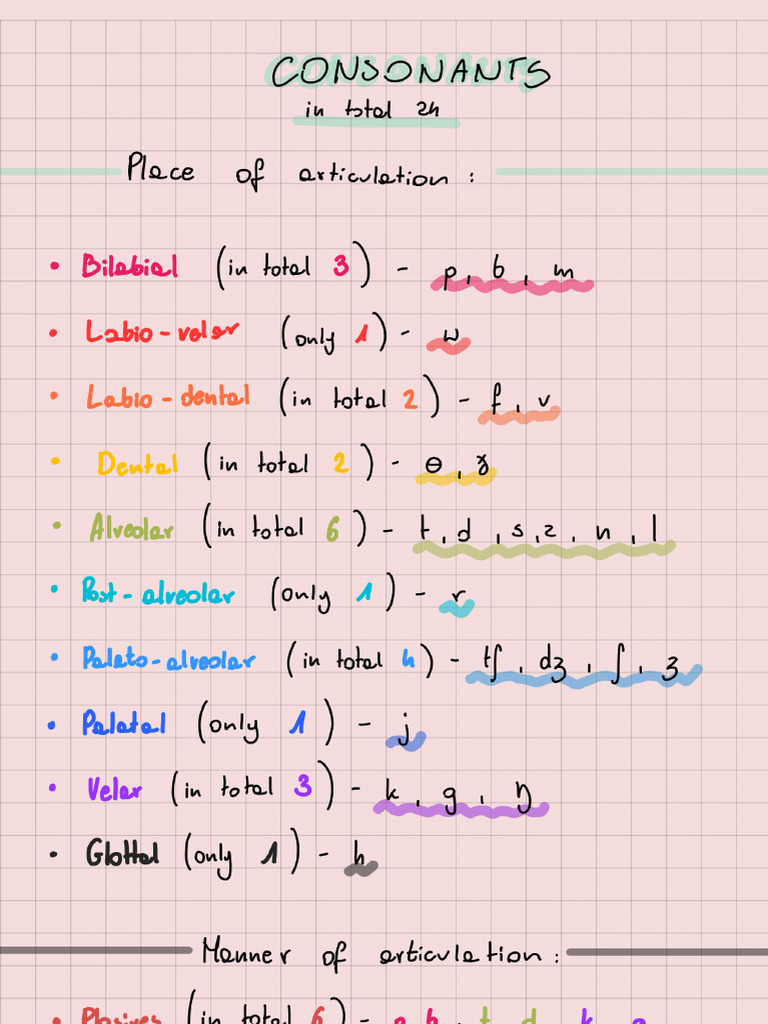 CONSONANTS
in total 24
Place of articulation:
• Bilabial (in total 3) - p, b, m
• Labio-velar (only 1) - w
• Labio-dental (in total 2) - f, v
• Dental (in total 2) - θ, ð
• Alveolar (in total 6) - t, d, s, z, n, l
• Post-alveolar (only 1) - r
• Palato-alveolar (in total 4) - tʃ, dʒ, ʃ, ʒ
• Palatal (only 1) - j
• Velar (in total 3) - k, g, ŋ
• Glottal (only 1) - h
Manner of articulation:
• Plosives (in total 6) - p, b, t, d, k, g